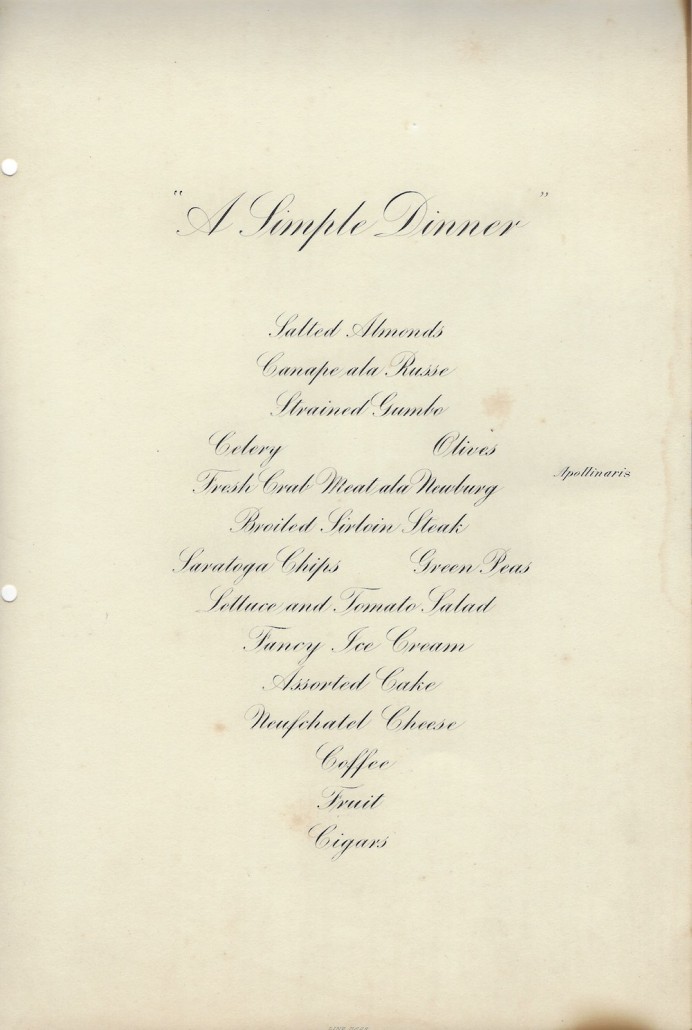 "A Simple Dinner"
Salted Almonds
Canape ala Russe
Strained Gumbo
Celery Olives
Apollinaris
Fresh Crab Meat ala Newburg
Broiled Sirloin Steak
Saratoga Chips Green Peas
Lettuce and Tomato Salad
Fancy Ice Cream
Assorted Cake
Neufchatel Cheese
Coffee
Fruit
Cigars